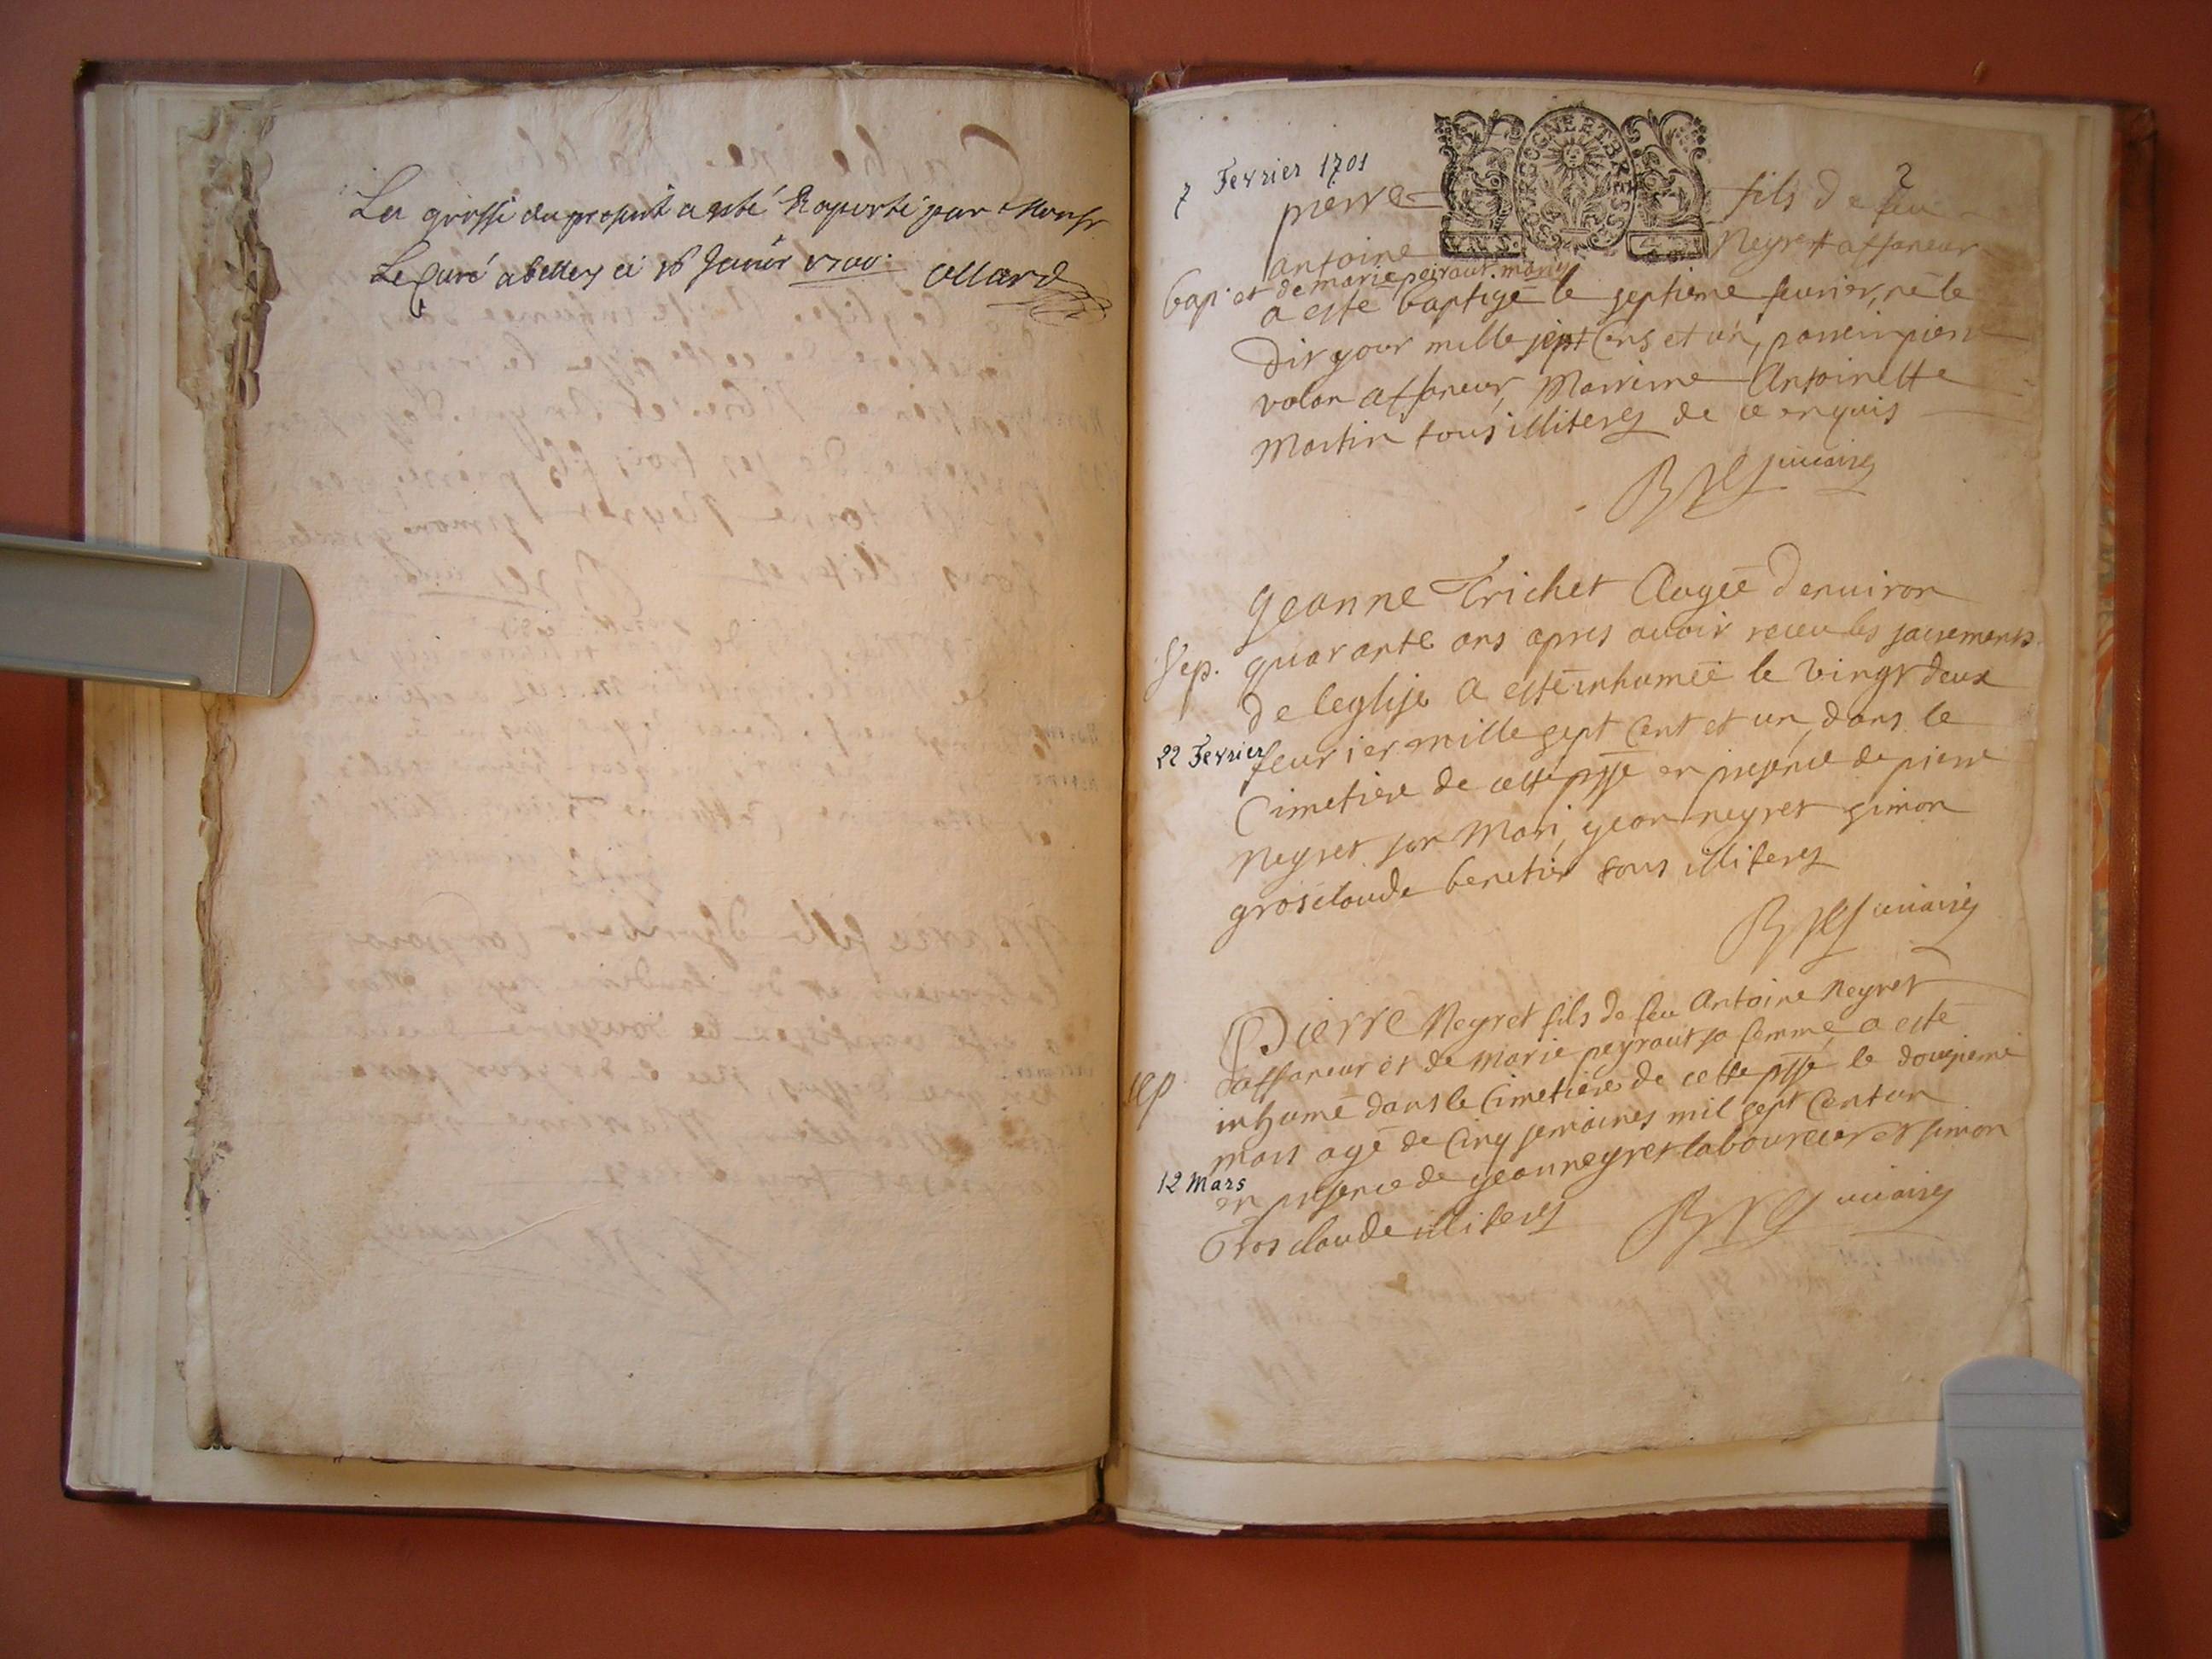 La grosse du present a esté Raporté par Monsr
Le Curé a belley ce 16 Janvier 1700. Allard
7 Fevrier 1701
2
BOURGOGNE ET BRESSE
pierre fils de feu
antoine Neyret affaneur
bap. et de marie peiraut. mariés
a esté baptizé le septieme feurier, né le
dit your mille sept Cens et un, parrein pierre
volan affaneur, Marreine Antoinette
Martin tous illiteres de ce enquis
Jeanne Trichet Aagée denuiron
Sep. quarante ans apres auoir receu les sacrements
de leglise a esté inhumée le vingt deux
22 Fevrier
feurier mille sept Cent et un, dans le
Cimetiere de cette psse en presence de pierre
neyret son Mari, jean neyret simon
grosclaude benetier tous illiteres
Pierre Neyret fils de feu Antoine Neyret
affaneur et de Marie peyraut sa femme, a esté
sep inhumé dans le Cimetiere de cette psse le douzieme
mars agé de Cinq semaines mil sept Cent un
12 Mars
en presence de jean neyret laboureur et simon
Gros claude illiteres